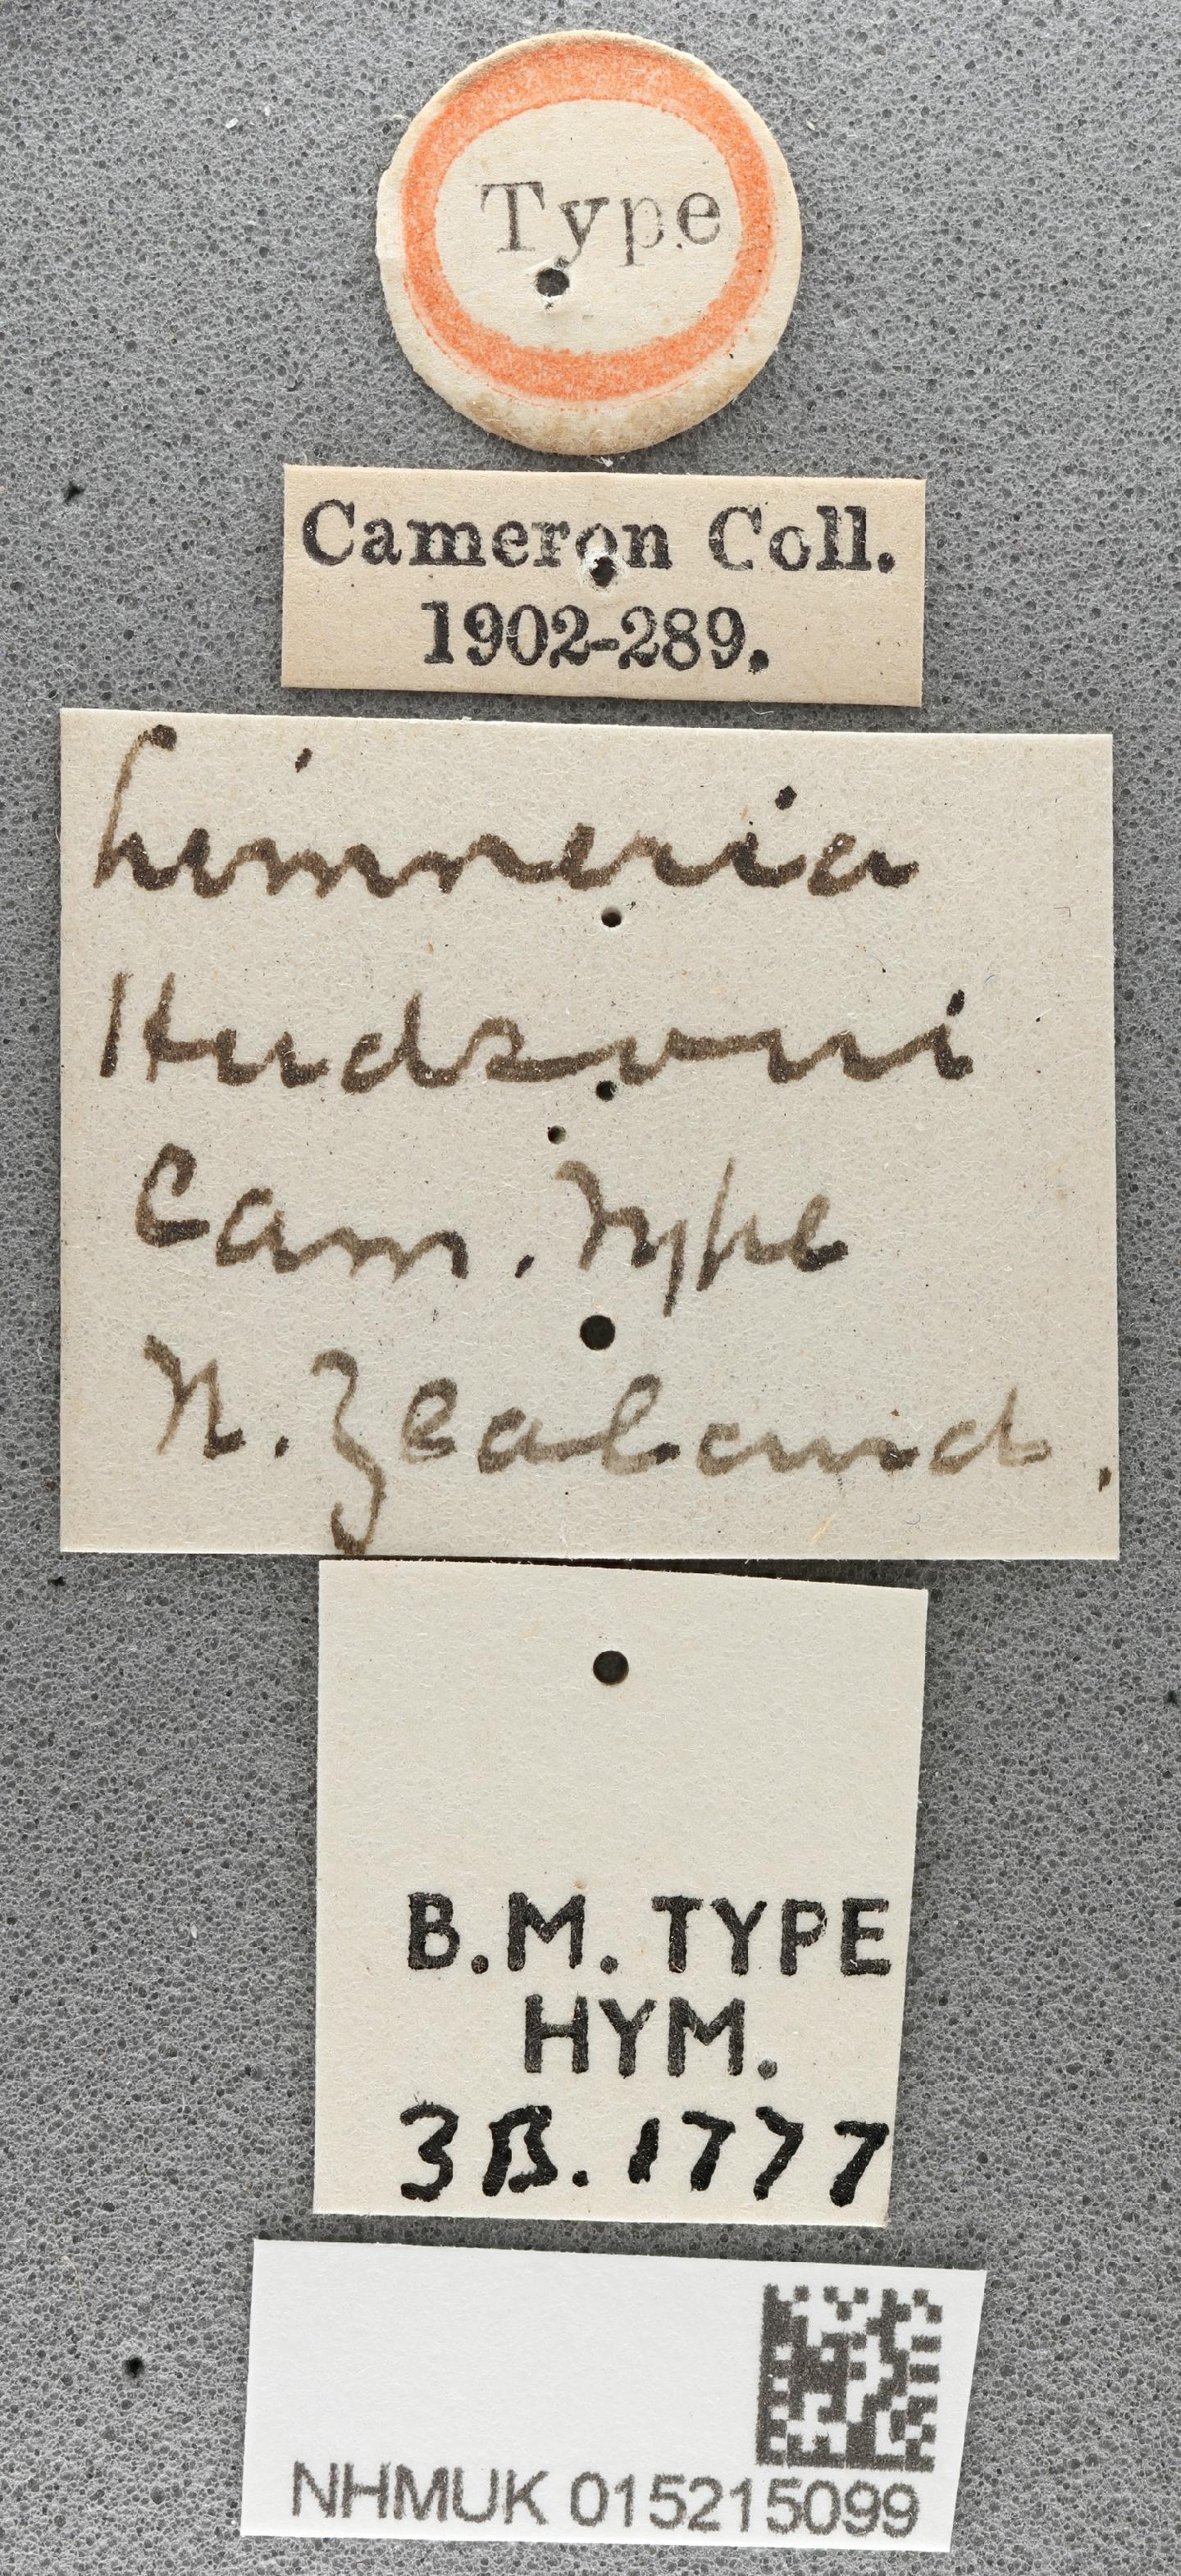 Type
Cameron Coll.
1902-289.
Limneria
Hudsoni
Cam. Type
N. Zealand.
B.M. TYPE
HYM.
3B. 1777
NHMUK 015215099